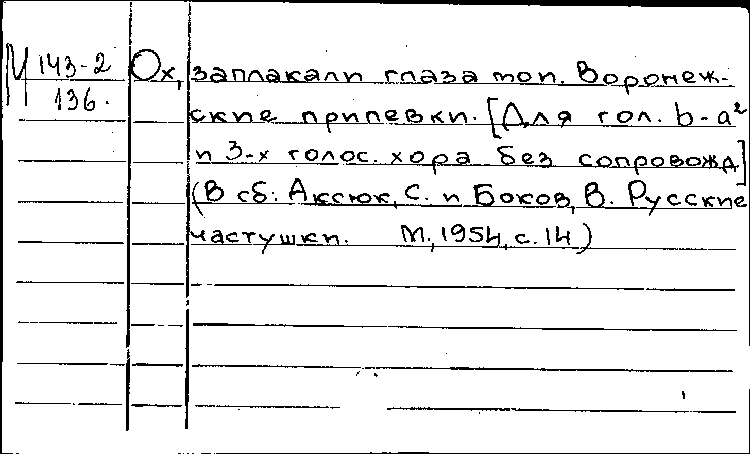 М 143-2
136.
Ох, заплакали глаза мои. Воронеж-
ские припевки. [Для гол. b-a²
и 3-х голос. хора без сопровожд.]
(В сб: Аксюк, С. и Боков, В. Русские
частушки. М., 1954, с. 14)